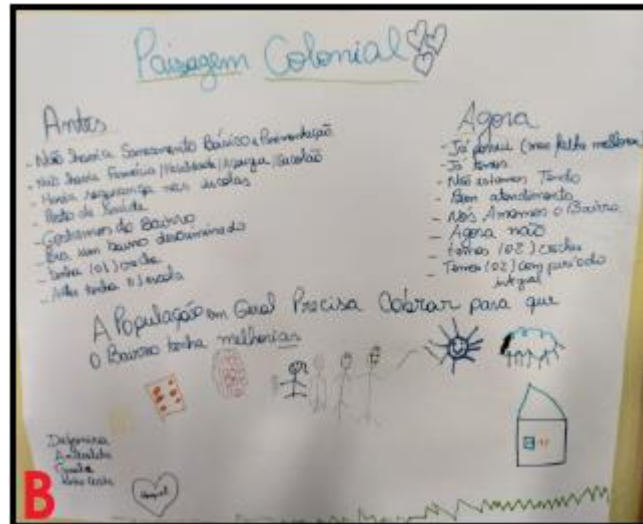 Paisagem Colonial
Antes
- Não havia Saneamento Básico e Pavimentação
- Não havia Farmácia / / Açougue / Sacolão
- Havia segurança nas escolas
- Posto de Saúde
- Gostamos do Bairro
- Era um bairro descriminado
- tinha (01) creche
- tinha 01 escola
Agora
- Já possui (mas falta melhorar
- Já temos
- Não estamos Tendo
- Bom atendimento
- Nós Amamos o Bairro
- Agora não
- temos (02) creches
- Temos (02) com período
integral
A População em Geral Precisa Cobrar para que
O Bairro tenha melhorias
B